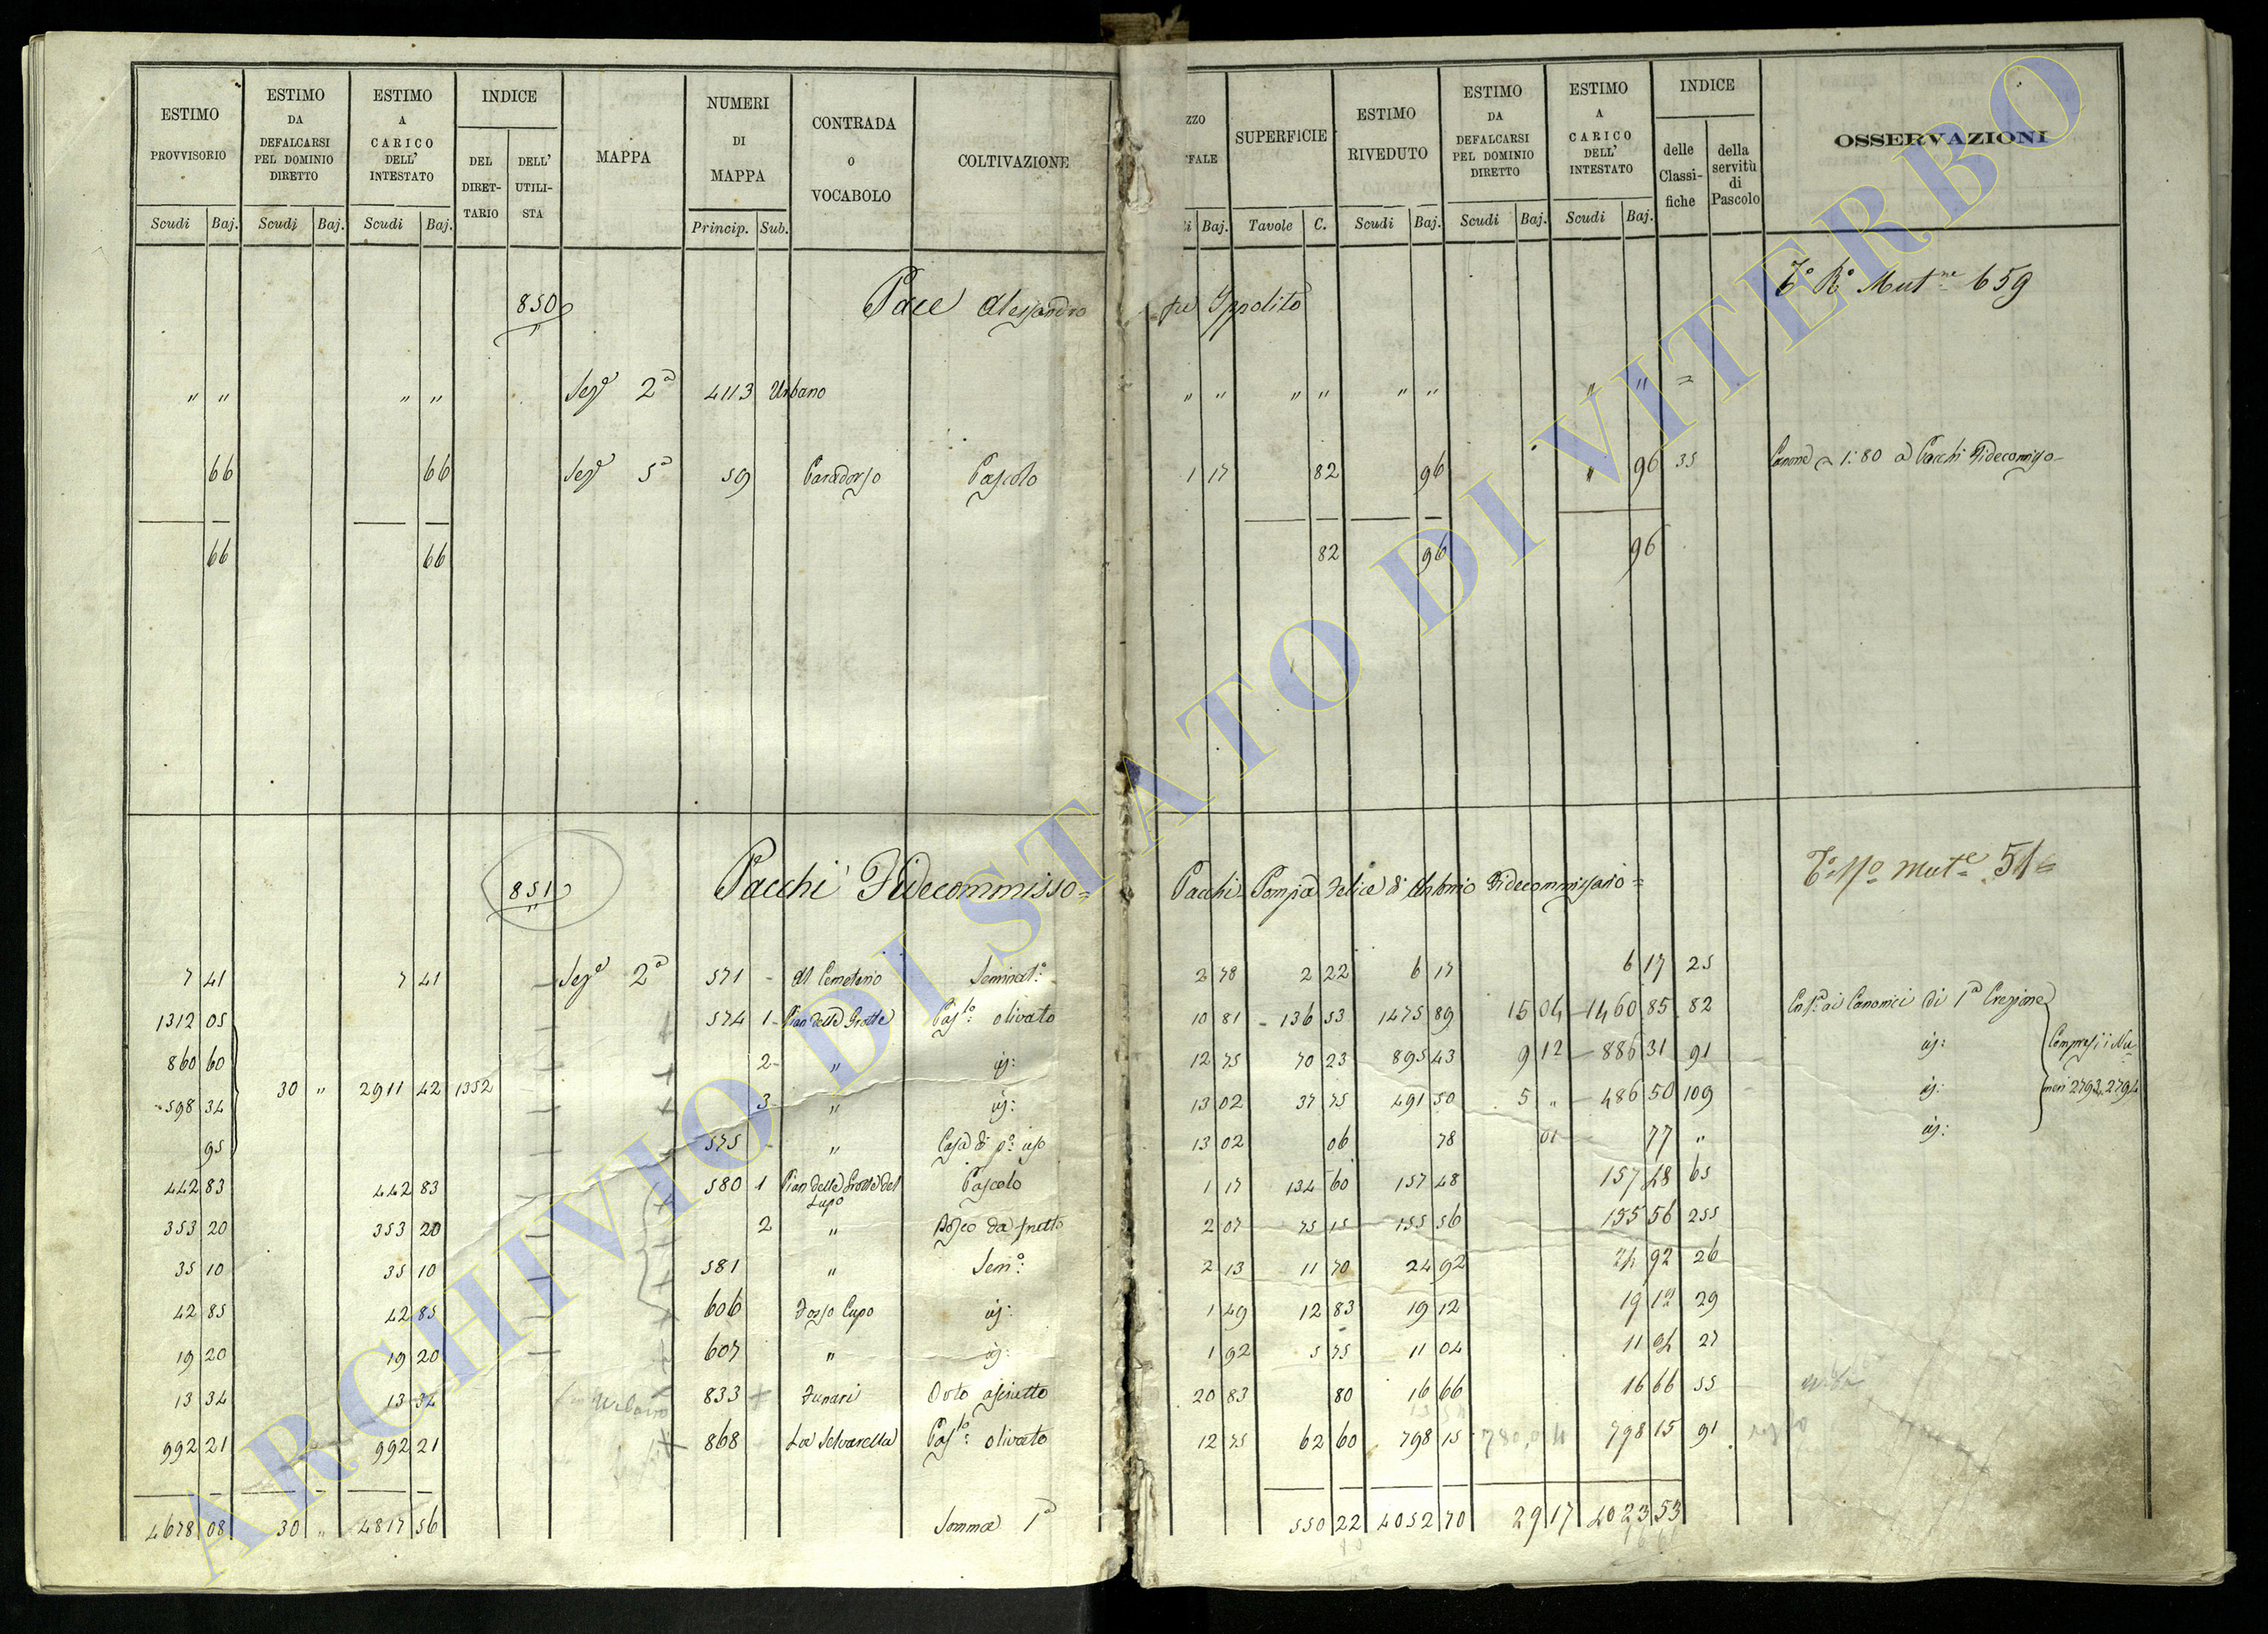 ESTIMO PROVVISORIO Scudi Baj.
ESTIMO DA DEFALCARSI PEL DOMINIO DIRETTO Scudi Baj.
ESTIMO A CARICO DELL' INTESTATO Scudi Baj.
INDICE DEL DIRET-TARIO DELL' UTILI-STA
MAPPA
NUMERI DI MAPPA Princip. Sub.
CONTRADA O VOCABOLO
COLTIVAZIONE
ZZO FALE i Baj.
SUPERFICIE Tavole C.
ESTIMO RIVEDUTO Scudi Baj.
ESTIMO DA DEFALCARSI PEL DOMINIO DIRETTO Scudi Baj.
ESTIMO A CARICO DELL' INTESTATO Scudi Baj.
INDICE delle Classi-fiche della servitù di Pascolo
OSSERVAZIONI
850 Pace Alessandro fu Ippolito T° R° Mut.ne 659
" " " " Sez.e 2a 4113 Urbano " " " " " " " " =
66 66 Sez.e 5a 59 Paradosso Pascolo 1 17 82 96 " 96 35 Canone 1:80 a Pacchi Fidecomisso
66 66 82 96 96
851 Pacchi Fidecommisso = Pacchi Pompa Felice di Antonio Fidecommissario = Mut.e 51=
7 41 7 41 Sez.e 2a 571 - Al Cemeterio Seminat.o 2 78 2 22 6 17 6 17 25
1312 05 574 1 Pian delle Grotte Pas.lo olivato 10 81 136 53 1475 89 15 04 1460 85 82 ai Canonici di 1a Erezione
860 60 2 " id: 12 75 70 23 895 43 9 12 886 31 91 id: Compresi i Nu
598 34 30 " 2911 42 1352 3 " id: 13 02 37 75 491 50 5 " 486 50 109 id: meri 2793, 2794
95 575 - " Casa di p.o uso 13 02 06 78 01 77 " id:
442 83 442 83 580 1 Pian delle Grotte del Lupo Pascolo 1 17 134 60 157 48 157 48 65
353 20 353 20 2 " Bosco da frutto 2 07 75 15 155 56 155 56 255
35 10 35 10 581 " Sem.o 2 13 11 70 24 92 24 92 26
42 85 42 85 606 Fosso Cupo id: 1 49 12 83 19 12 19 12 29
19 20 19 20 607 " id: 1 92 5 75 11 04 11 04 27
13 34 13 34 Urbano 833 Funari Orto asciutto 20 83 80 16 66 16 66 55
992 21 992 21 868 La Selvarella Pas.lo olivato 12 75 62 60 798 15 780,04 798 15 91
4678 08 30 " 4817 56 Somma 1a 550 22 4052 70 29 17 4023 53
ARCHIVIO DI STATO DI VITERBO